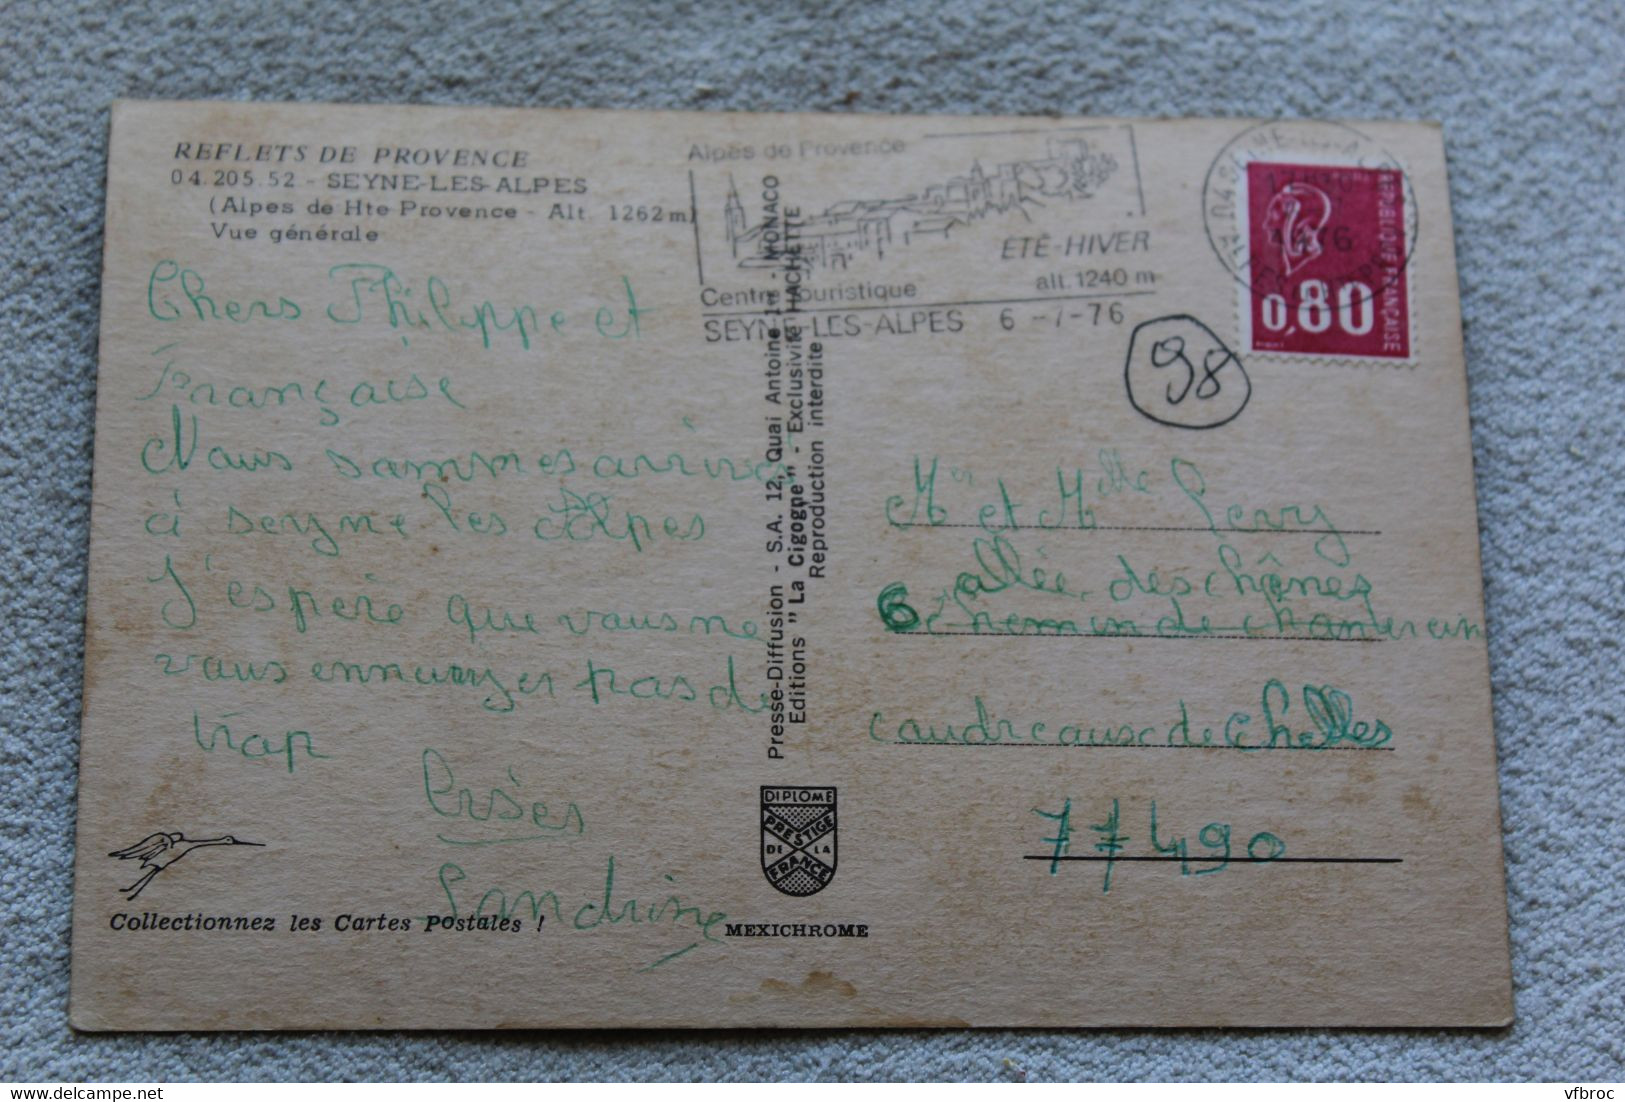 REFLETS DE PROVENCE
04.205.52 - SEYNE-LES-ALPES
(Alpes de Hte Provence - Alt. 1262 m)
Vue générale
Chers Philippe et
Française
Nous sommes arrivés
à seyne les Alpes
J'espère que vous ne
vous ennuyer pas de
trop
Sandrine
Collectionnez les Cartes Postales !
Presse-Diffusion - S.A. 12, Quai Antoine 1er - MONACO
Editions "La Cigogne" - Exclusivité HACHETTE
Reproduction interdite
DIPLOME
PRESTIGE
DE LA
FRANCE
MEXICHROME
Alpes de Provence
ETE-HIVER
alt. 1240 m
Centre touristique
SEYNE-LES-ALPES 6-7-76
REPUBLIQUE FRANÇAISE
0,80
98
Mr et Mlle
6 allée des chênes
chemin de
de Chelles
77490
vfbroc